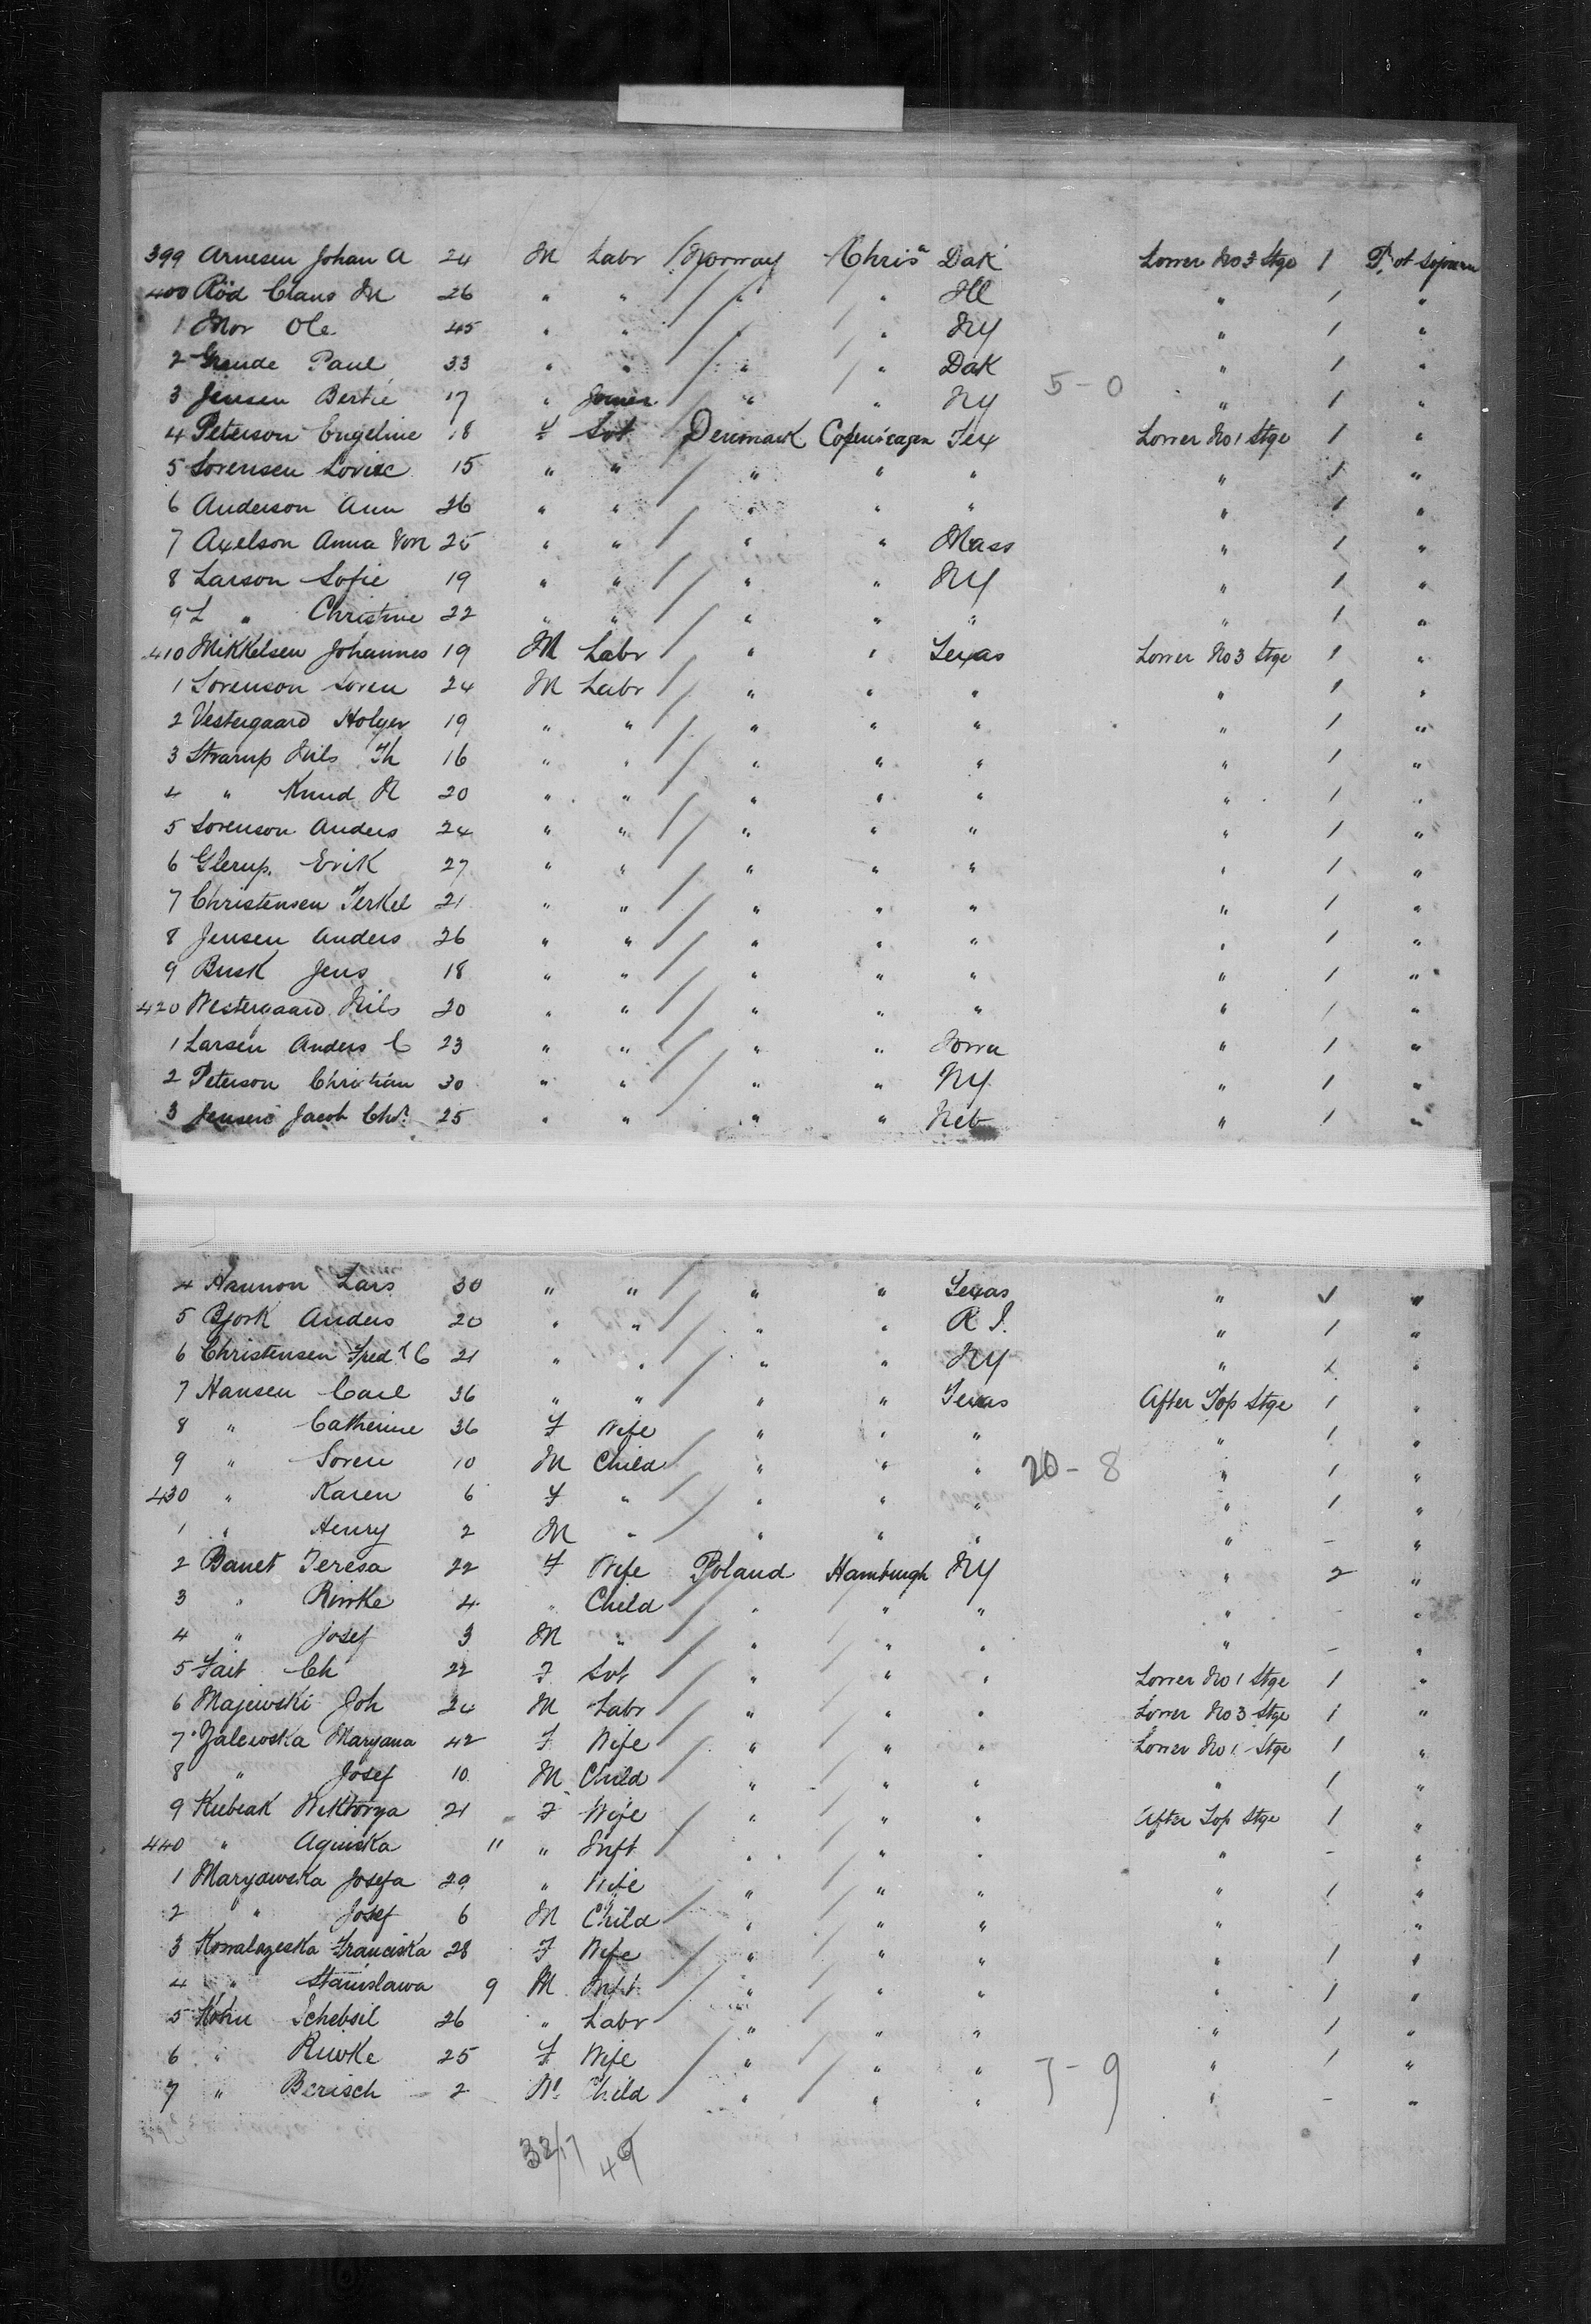 399 Arnesen Johan A 24 M Labr Norway Chrisª Dak Lower No 3 Stge 1 Pr. ot Sojourn
400 Rød Claus M 26 " " " " Ill " 1 "
1 Mor Ole 45 " " " " NY " 1 "
2 Grude Paul 33 " " " " Dak " 1 "
3 Jensen Bertie 17 " Joiner " " NY 5-0 " 1 "
4 Peterson Engeline 18 F Svt Denmark Copenhagen Tex Lower No 1 Stge 1 "
5 Sorensen Lovise 15 " " " " " " 1 "
6 Anderson Ann 26 " " " " " " 1 "
7 Axelson Anna Von 25 " " " " Mass " 1 "
8 Larson Sofie 19 " " " " NY " 1 "
9 L " Christine 22 " " " " " " 1 "
410 Mikkelsen Johannes 19 M Labr " " Texas Lower No 3 Stge 1 "
1 Sorenson Soren 24 M Labr " " " " 1 "
2 Vestergaard Holger 19 " " " " " " 1 "
3 Strarup Nils Th 16 " " " " " " 1 "
4 " Knud N 20 " " " " " " 1 "
5 Sorenson Anders 24 " " " " " " 1 "
6 Glerup. Erik 27 " " " " " " 1 "
7 Christensen Terkel 21 " " " " " " 1 "
8 Jensen Anders 26 " " " " " " 1 "
9 Busk Jens 18 " " " " " " 1 "
420 Westergaard Nils 20 " " " " " " 1 "
1 Larsen Anders C 23 " " " " Iowa " 1 "
2 Peterson Christian 30 " " " " NY " 1 "
3 Jensen Jacob Chr. 25 " " " " Neb " 1 "
4 Hannon Lars 30 " " " " Texas " "
5 Bjork Anders 20 " " " " R I. " 1 "
6 Christensen Fred C 21 " " " " NY " 1 "
7 Hansen Carl 36 " " " " Texas After Top Stge 1 "
8 " Catherine 36 F Wife " " " " 1 "
9 " Soren 10 M Child " " " 20-8 " 1 "
430 " Karen 6 F " " " " " 1 "
1 " Henry 2 M " " " " " - "
2 Banet Teresa 22 F Wife Poland Hamburgh NY " 2 "
3 " Riwke 4 " Child " " " " - "
4 " Josef 3 M " " " " " - "
5 Fait Ch 22 F Svt " " " Lower No 1 Stge 1 "
6 Majewski Joh 24 M Labr " " " Lower No 3 Stge 1 "
7 Zalewska Maryana 42 F Wife " " " Lower No 1 Stge 1 "
8 " Josef 10 M Child " " " " 1 "
9 Kubiak Wiktorya 21 F Wife " " " After Top Stge 1 "
440 " Agniska 11 " Inft " " " " - "
1 Maryawska Josefa 29 " Wife " " " " 1 "
2 " Josef 6 M Child " " " " - "
3 Kowalazeska Franciska 28 F Wife " " " " 1 "
4 " Stanislawa 9 M Inft " " " " 1 "
5 Kohn Schebsil 26 " Labr " " " " 1 "
6 " Riwke 25 F Wife " " " " 1 "
7 " Berisch 2 M Child " " " 7-9 " - "
32/17 49